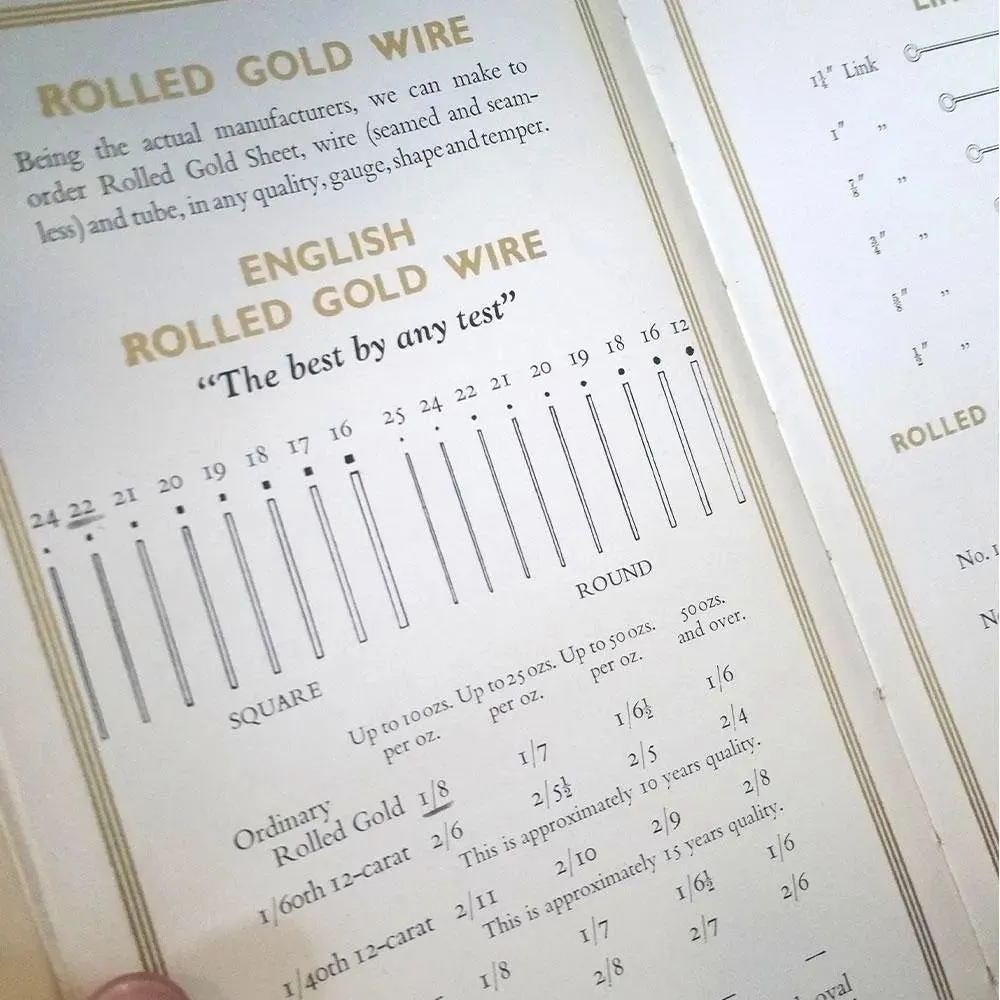 ROLLED GOLD WIRE
Being the actual manufacturers, we can make to
order Rolled Gold Sheet, wire (seamed and seam-
less) and tube, in any quality, gauge, shape and temper.
ENGLISH
ROLLED GOLD WIRE
“The best by any test”
24 22 21 20 19 18 17 16 25 24 22 21 20 19 18 16 12
SQUARE ROUND
Up to 10 ozs. Up to 25 ozs. Up to 50 ozs. 50 ozs.
per oz. per oz. per oz. and over.
Ordinary
Rolled Gold 1/8 1/7 1/6½ 1/6
1/60th 12-carat 2/6 2/5½ 2/5 2/4
This is approximately 10 years quality.
1/40th 12-carat 2/11 2/10 2/9 2/8
This is approximately 15 years quality.
1/8 1/7 1/6½ 1/6
2/8 2/7 2/6
— oval
1¼" Link
1" ”
⅞" ”
¾" ”
⅝" ”
½" ”
ROLLED
No. 1